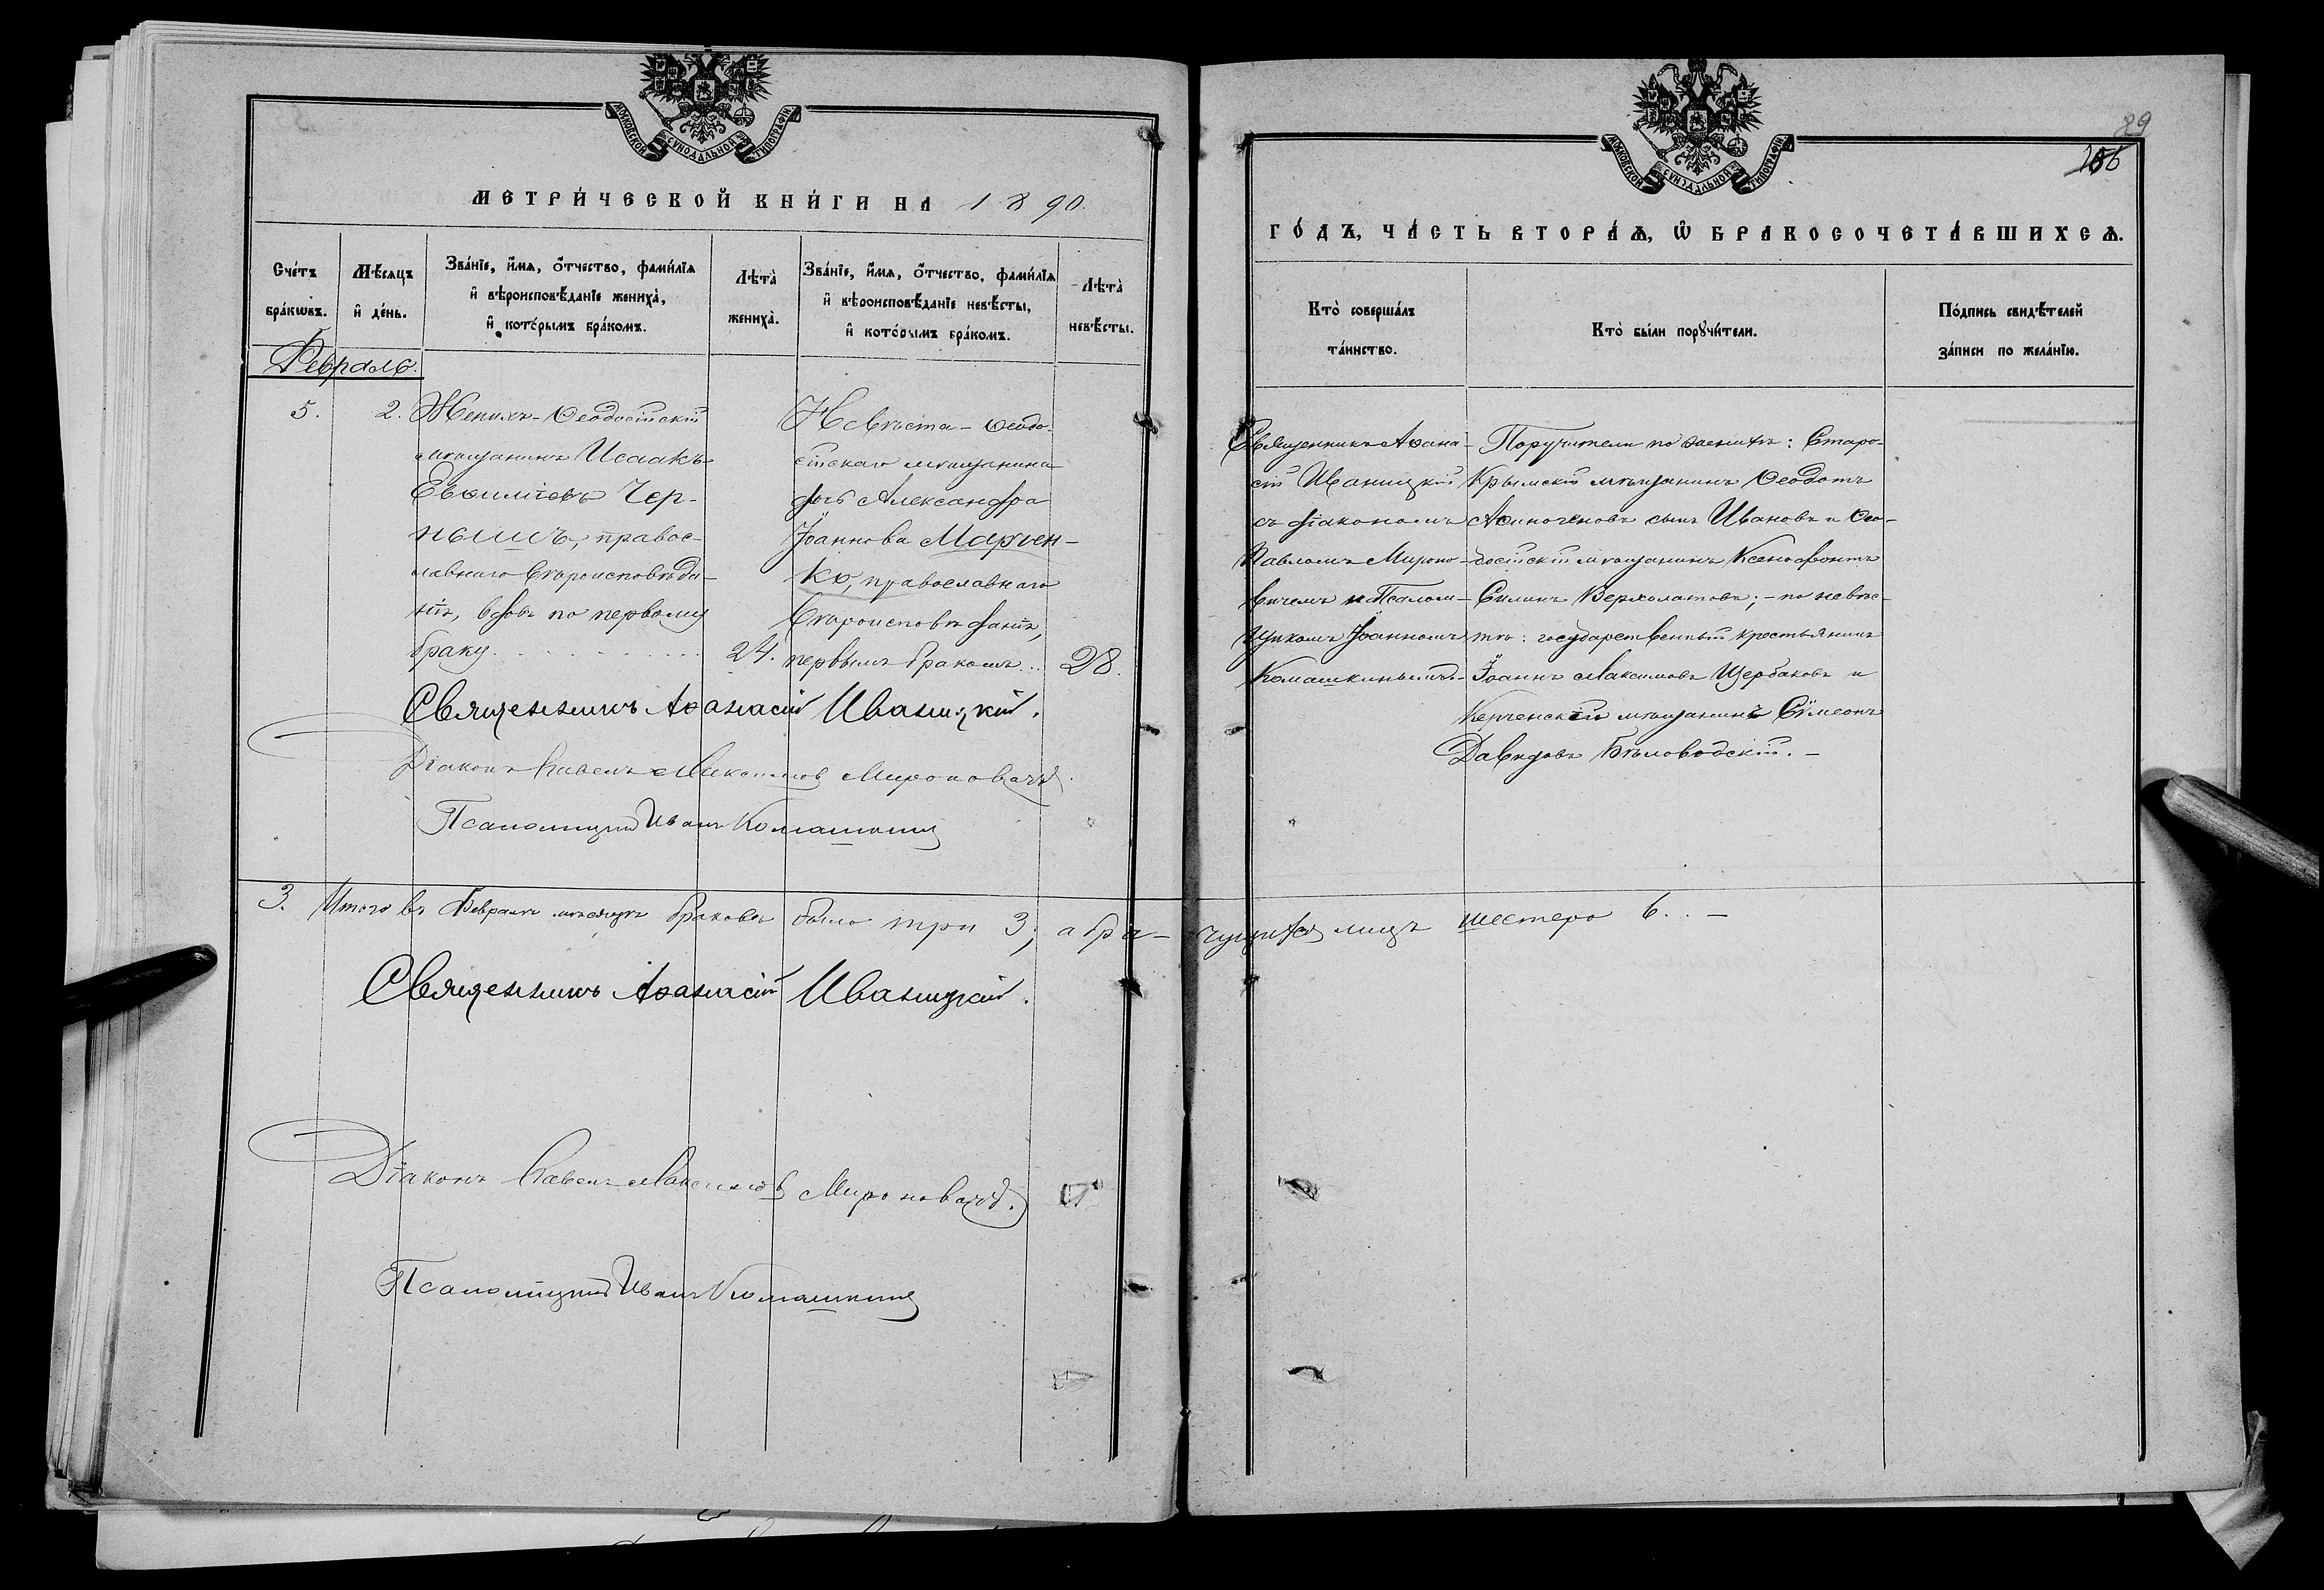 МОСКОВСКОЙ СѴНОДАЛЬНОЙ ТИПОГРАФІИ
МЕТРИ́ЧЕСКОЙ КНИ́ГИ НА 1890.
Сче́тъ бра́кѡвъ.
Мѣ́сяцъ и҆ де́нь.
Зва́нїе, и҆́мѧ, ѻ҆́тчество, фами́лїѧ
и҆ вѣроисповѣ́данїе жениха̀,
и҆ кото́рымъ бра́комъ.
Лѣта̀ жениха̀.
Зва́нїе, и҆́мѧ, ѻ҆́тчество, фами́лїѧ
и҆ вѣроисповѣ́данїе невѣ́сты,
и҆ кото́рымъ бра́комъ.
Лѣта̀ невѣ́сты.
Февраль.
5.
2.
Женихъ - Ѳеодосійскій
мѣщанинъ Исаакъ
Евѳиміевъ Чер-
нышъ, правос-
лавнаго вѣроисповѣда-
нія, вдовъ по первому
браку.
24.
Невѣста - Ѳеодо-
сійскаго мѣщанина
дочь Александра
Іоаннова Марчен-
ко, православнаго
вѣроисповѣданія,
первымъ бракомъ..
28.
Священникъ Аѳанасій Иваницкій.
Діаконъ Павелъ Максимов Мироновичъ.
Псаломщикъ Иванъ Комашкинъ
3. Итого въ Февралѣ мѣсяцѣ браковъ было три 3; а бра-
Священникъ Аѳанасій Иваницкій.
Діаконъ Павелъ Максимов Мироновичъ.
Псаломщикъ Иванъ Комашкинъ
89
МОСКОВСКОЙ СѴНОДАЛЬНОЙ ТИПОГРАФІИ
ГО́ДЪ, ЧА́СТЬ ВТОРА́Ѧ, Ѽ БРАКОСОЧЕТА́ВШИХСѦ.
Кто̀ соверша́лъ
та́инство.
Кто̀ бы́ли порꙋчи́тели.
По́дпись свидѣ́телей
за́писи по жела́нїю.
Священникъ Аѳана-
сій Иваницкій
съ діакономъ
Павломъ Мироно-
вичемъ и Псалом-
щикомъ Іоанномъ
Комашкинымъ.
Поручители по женихѣ: Старо-
Крымскій мѣщанинъ Ѳеодотъ
Аѳиногеновъ сынъ Ивановъ и Ѳео-
досійскій мѣщанинъ Ксенофонтъ
Силинъ Верхолатовъ; - по невѣс-
тѣ: государственный крестьянинъ
Іоаннъ Максимовъ Щербаковъ и
Керченскій мѣщанинъ Сѵмеонъ
Давидовъ Бѣловодскій. -
чущихся лицъ шестеро 6.. -